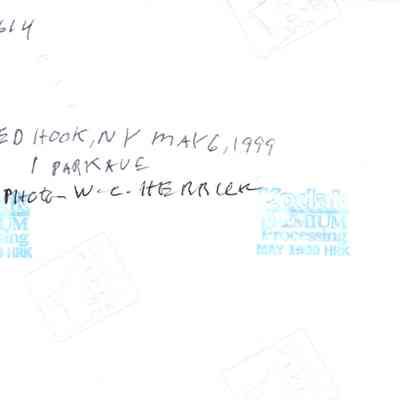 614
ED HOOK, NY MAY 6, 1999
1 PARK AVE
PHOTO- W. C. HERRICK
Kodak
UM
PREMIUM
ing
Processing
HRK
MAY 1999 HRK